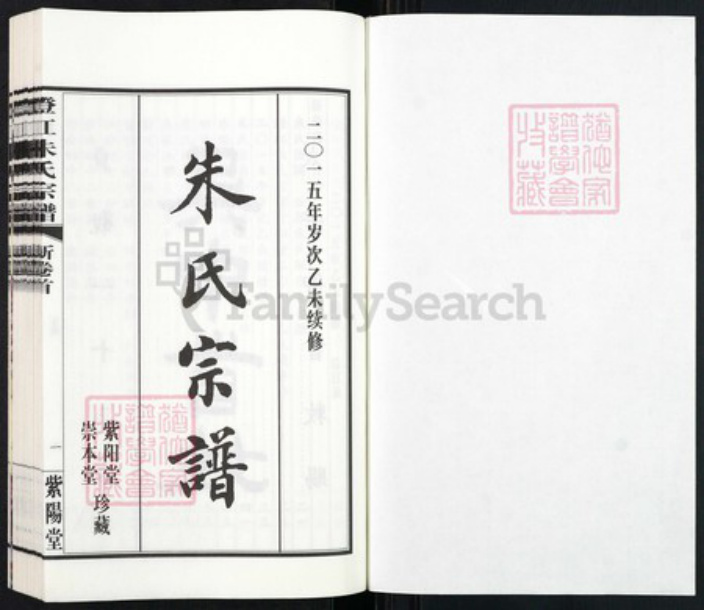 二〇一五年岁次乙未续修
朱氏宗譜
紫阳堂
崇本堂
珍藏
澄江朱氏宗譜
新卷首
一
紫陽堂
FamilySearch
譜學會
收藏